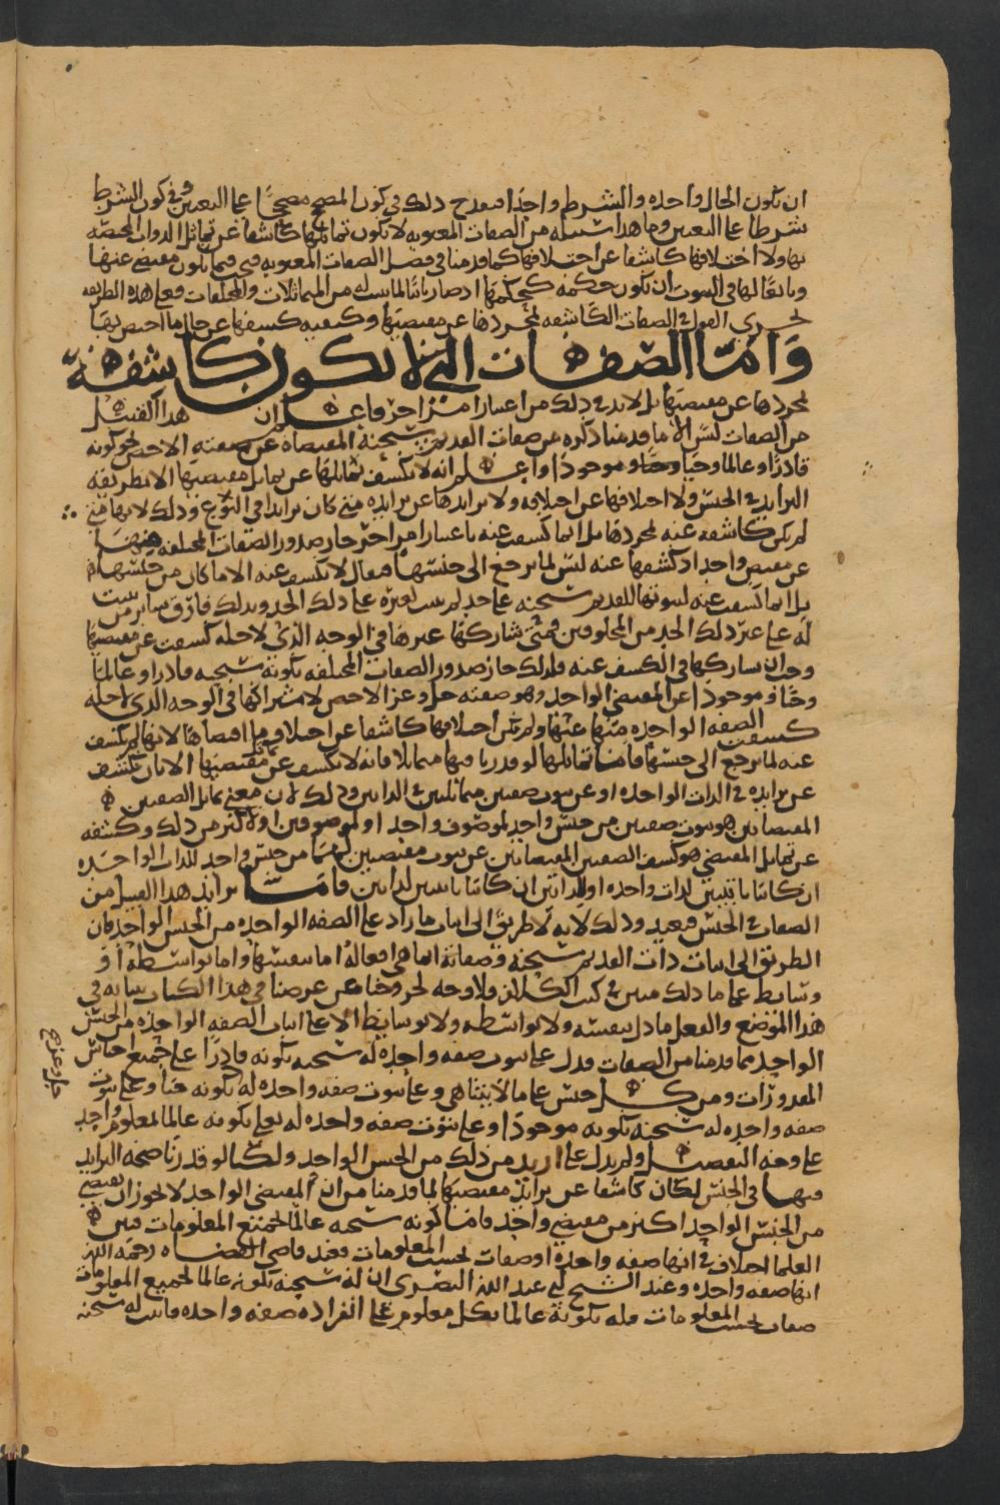 ان تكون الحال واحده والشرط واحدا فيقدح ذلك في كون المصحح مصححا على التعيين وفي كون الشرط
شرطا على التعيين وما هذا سبيله من الصفات المعنويه لا يكون تماثلها كاشفا عن تماثل الذوات المختصه
بها ولا اختلافها كاشفا عن اختلافها كما قدمنا في فصل الصفات المعنويه فيما يكون مقتضى عنها
وتابعا لها في الثبوت ان يكون حكمه كحكمها اذ صار تابعا لما ليس له من المتماثلات والمختلفات فعلى هذه الطريقه
يجري القول في الصفات الكاشفه بمجردها عن مقتضيها وكيفيه كشفها عن حال ما اختص بها
وَامّا الصفات التي لا تكون كاشفة
بمجردها عن مقتضيها بل لا بد في ذلك من اعتبار امر اخر فاعلم ان هذا القبيل
من الصفات ليس الا ما قدمنا ذكره من صفات القديم سبحنه المقتضاه عن صفته الاخص نحو كونه
قادرا وعالما وحيا وموجودا واعلم انه لا يكشف تماثلها عن تماثل مقتضيها الا بطريقه
التزايد في الجنس ولا اختلافها عن اختلافه ولا تزايدها عن تزايده متى كان تزايدا في النوع وذلك لانها متى
لم تكن كاشفه عنه بمجردها بل انما كشفت عنه باعتبار امر اخر جاز صدور الصفات المختلفه منها
عن مقتض واحد اذ كشفها عنه ليس لما يرجع الى جنسها فيقال لا يكشف عنه الا ما كان من جنسها
بل انما كشفت عنه لثبوتها للقديم سبحنه على حد لم يثبت لغيره على ذلك الحد وبذلك فارق سائر من يثبت
له على غير ذلك الحد من المخلوقين فمتى شاركها غيرها في الوجه الذي لاجله كشفت عن مقتضيها
وجب ان يشاركها في الكشف عنه فلذلك جاز صدور الصفات المختلفه ككونه سبحنه قادرا وعالما
وحيا وموجودا عن المقتضي الواحد وهو صفته جل وعز الاخص لاشتراكها في الوجه الذي لاجله
كشفت الصفه الواحده منها عنها ولم يكن اختلافها كاشفا عن اختلاف ما اقتضاها لانها لم تكشف
عنه لما يرجع الى جنسها فاما تماثلها لو قدرنا فيها متماثلا فانه لا يكشف عن تماثل مقتضيها الا بان يكشف
عن تزايده في الذات الواحده او عن ثبوت صفتين متماثلتين في الذاتين وذلك لان معنى تماثل الصفتين
المقتضاتين هو ثبوت صفتين من جنس واحد لموصوف واحد او لموصوفين او لاكثر من ذلك وكشفه
عن تماثل المقتضي هو كشف الصفتين المقتضاتين عن ثبوت مقتضيين لهما من جنس واحد للذات الواحده
ان كانتا ثابتتين لذات واحده او لذاتين ان كانتا ثابتتين لذاتين فاما تزايد هذا القبيل من
الصفات في الجنس فبعيد وذلك لانه لا طريق الى اثبات ما زاد على الصفه الواحده من الجنس الواحد فان
الطريق الى اثبات ذات القديم سبحنه وصفاته انما هي افعاله اما بنفسها واما بواسطه او
وسايط على ما ذلك مبين في كتب الكلام ولا وجه لخروجنا عن غرضنا في هذا الكتاب ببيانه في
هذا الموضع والفعل ما دل بنفسه ولا بواسطه ولا بوسايط الا على اثبات الصفه الواحده من الجنس
الواحد مما قدمنا من الصفات فدل على ثبوت صفه واحده له سبحنه بكونه قادرا على جميع اجناس
المقدورات ومن كل جنس على ما لا يتناهى وعلى ثبوت صفه واحده له بكونه حيا وعلى ثبوت
صفه واحده له سبحنه بكونه موجودا وعلى ثبوت صفه واحده له تعلى بكونه عالما بمعلوم واحد
على وجه التفصيل ولم يدل على ازيد من ذلك من الجنس الواحد ولكنا لو قدرنا صحه التزايد
فيها في الجنس لكان كاشفا عن تزايد مقتضيها لما قدمنا من ان المقتضي الواحد لا يجوز ان يقتضي
من الجنس الواحد اكثر من مقتضى واحد فاما كونه سبحنه عالما بجميع المعلومات فبين
العلما اختلاف في انها صفه واحده او صفات بحسب المعلومات فعند قاضي القضاه رحمه الله
انها صفه واحده وعند الشيخ ابي عبد الله البصري ان له سبحنه بكونه عالما لجميع المعلومات
صفات بحسب المعلومات فله بكونه عالما بكل معلوم على انفراده صفه واحده فاثبت له سبحنه